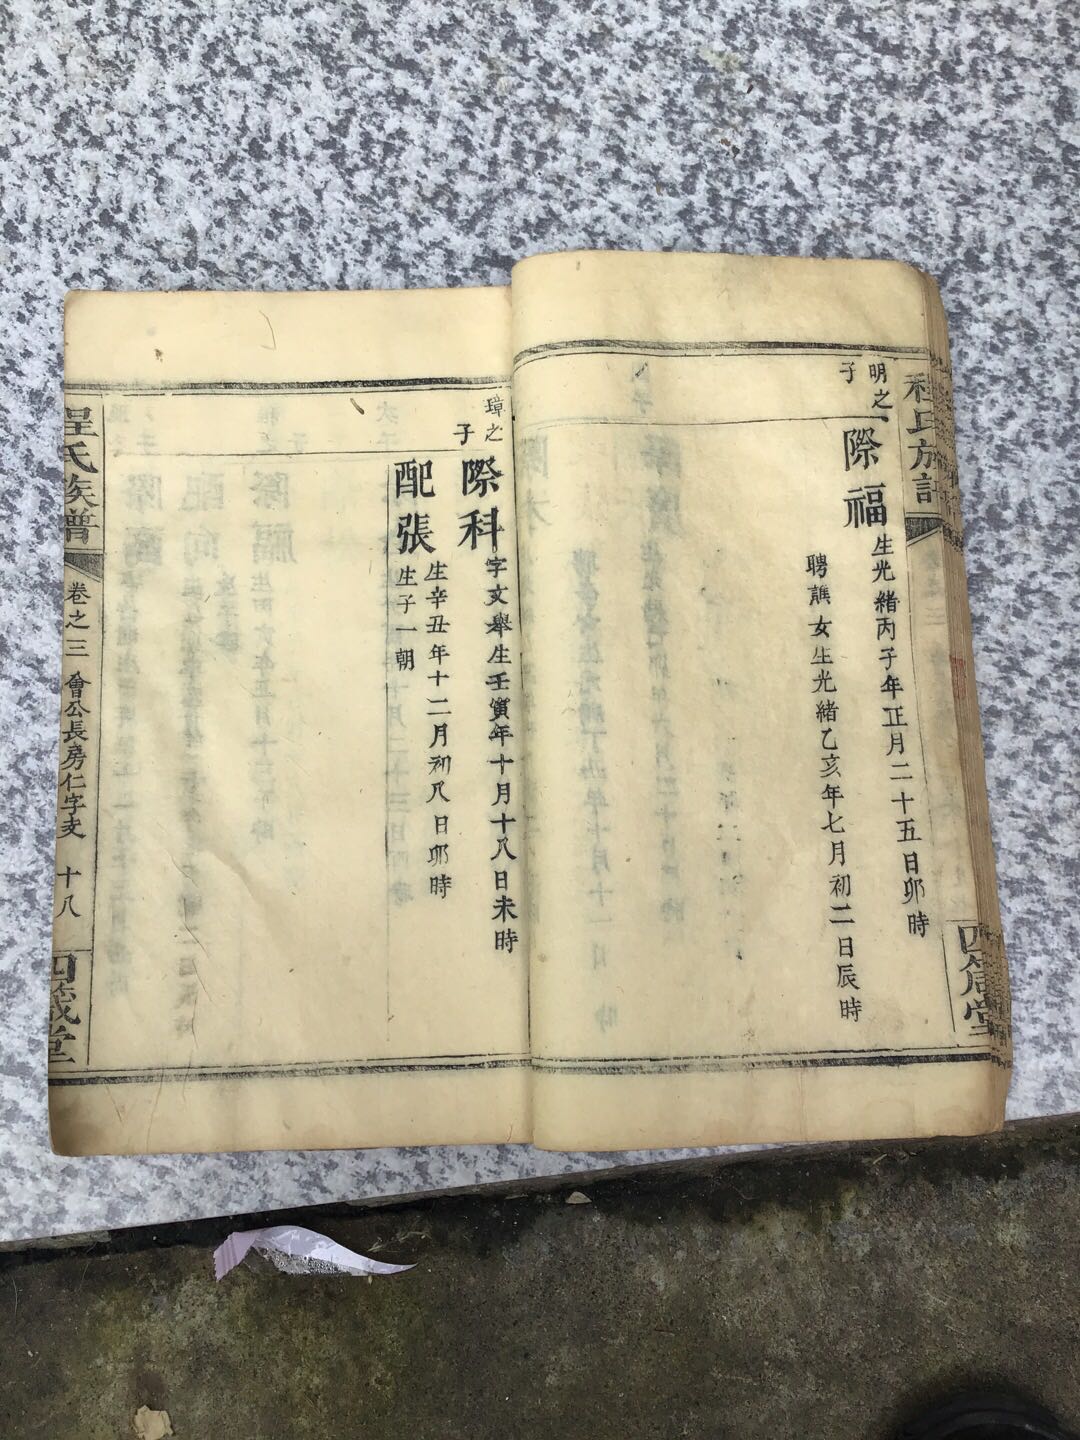 程氏族譜
四箴堂
明之
子
際福
生光緒丙子年正月二十五日卯時
聘譙女生光緒乙亥年七月初二日辰時
璋之
子
際科
字文舉生壬寅年十月十八日未時
配張
生辛丑年十二月初八日卯時
生子一朝
程氏族譜
卷之三
會公長房仁字支
十八
四箴堂